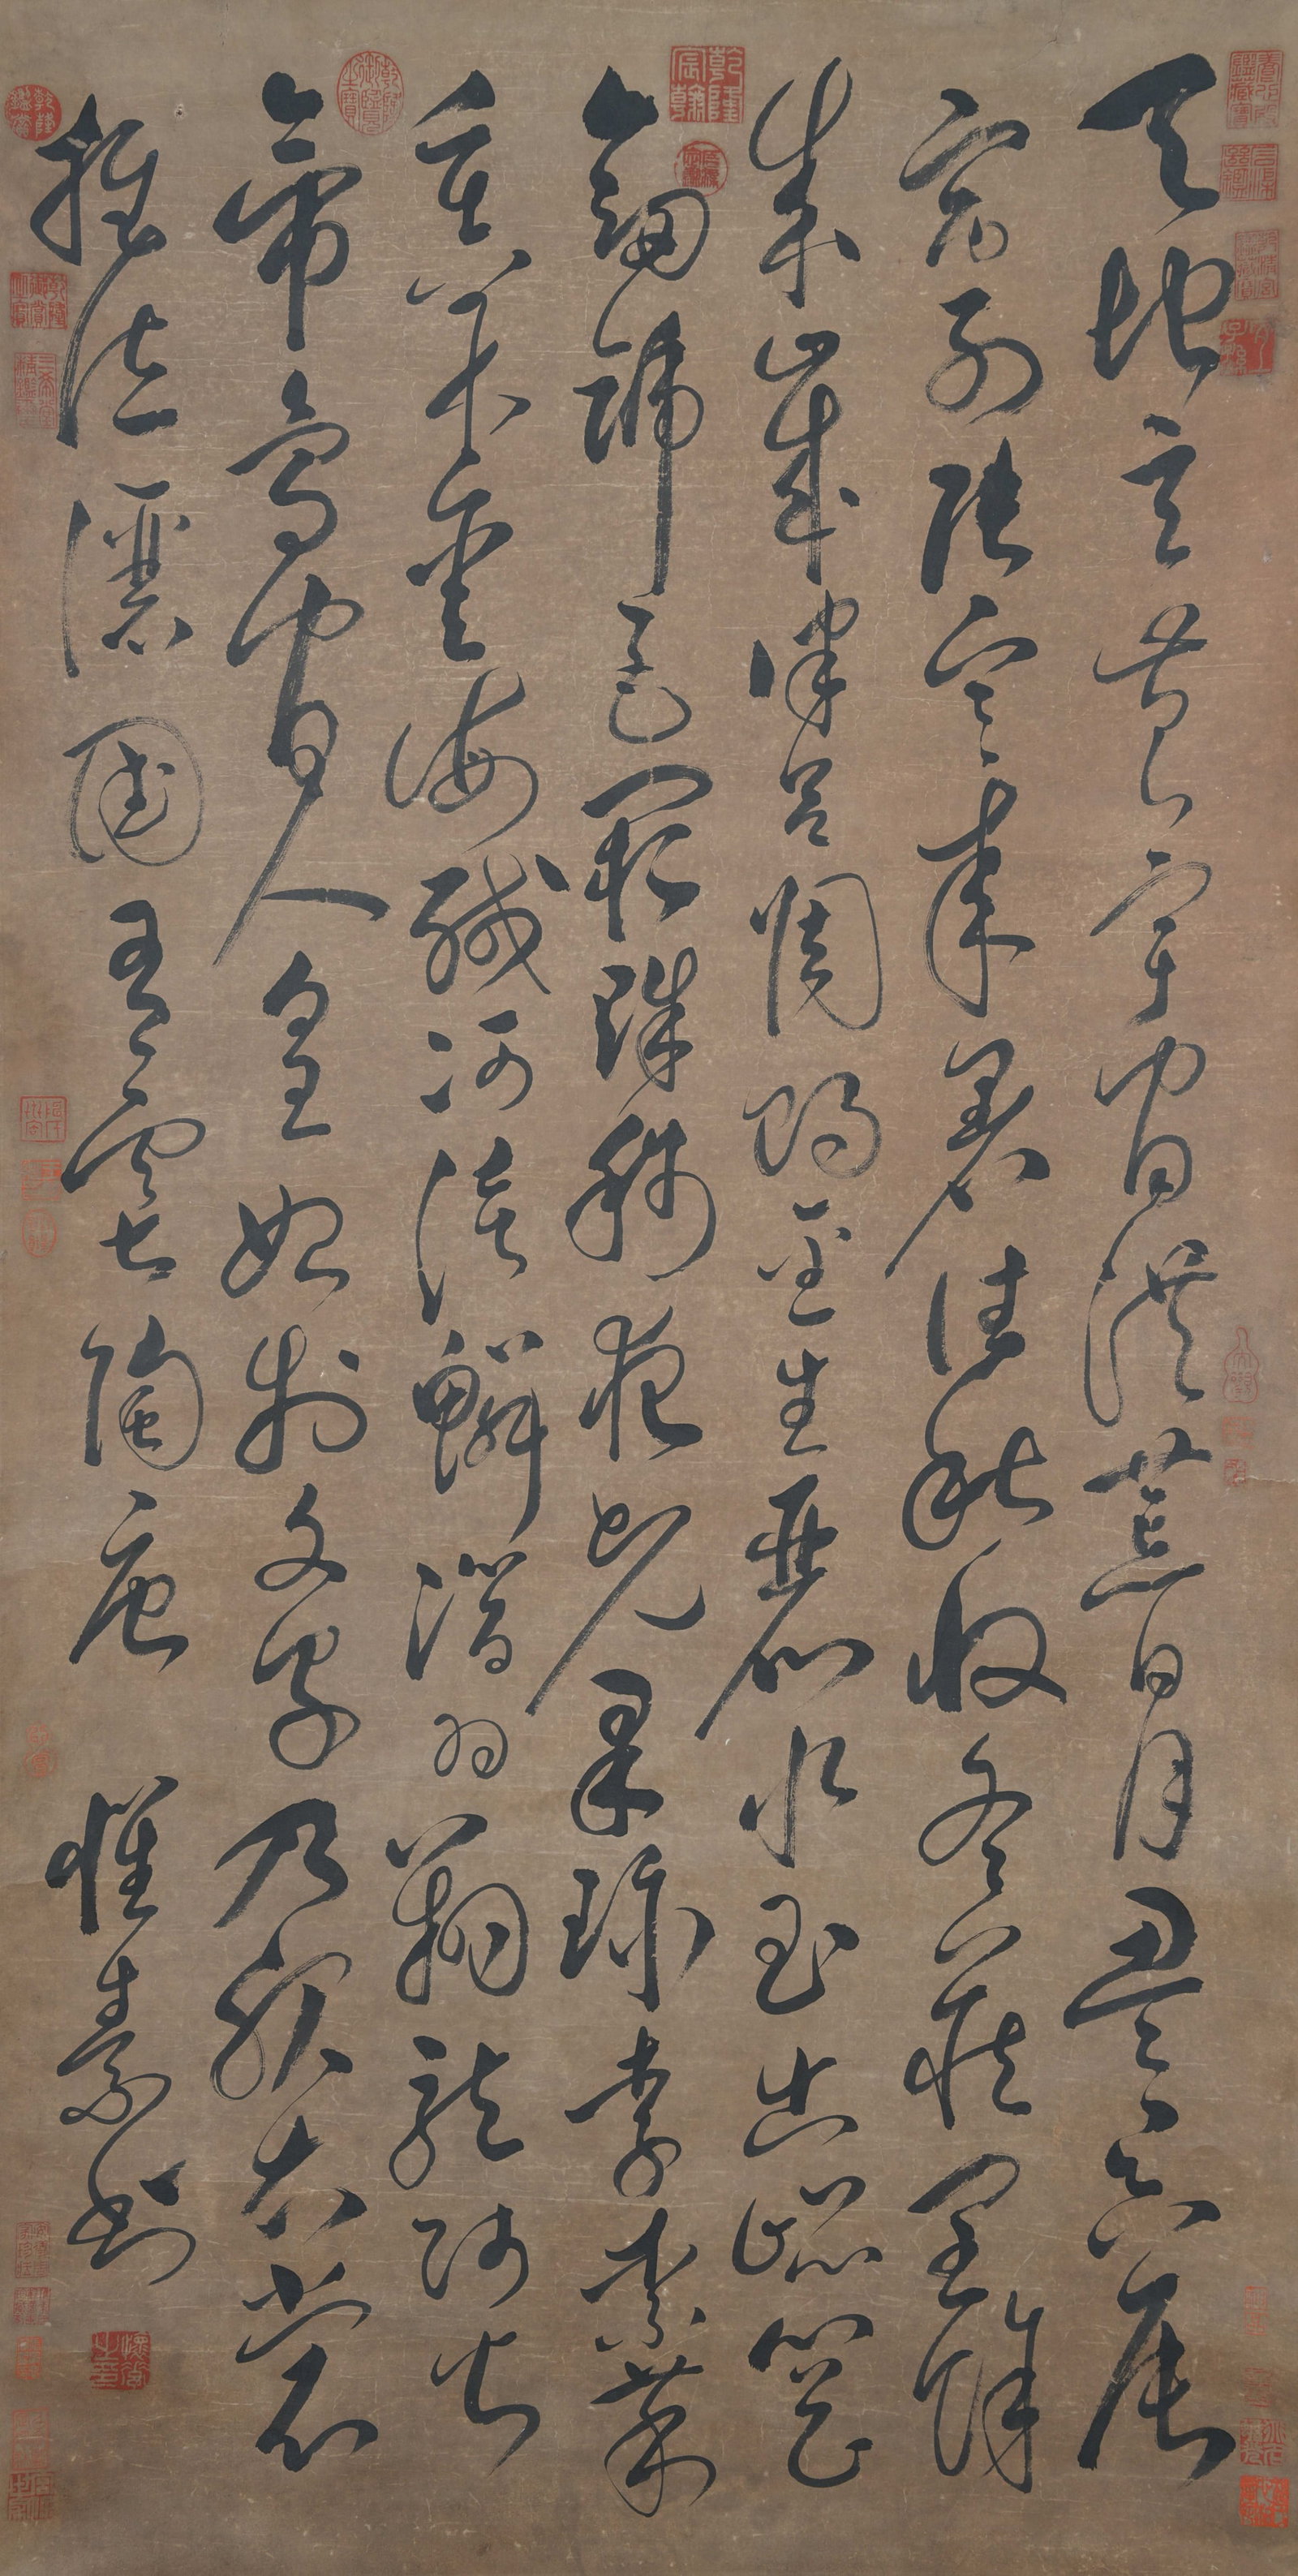 天地玄黃宇宙洪荒日月盈昃辰
宿列張寒來暑往秋收冬藏閏餘
成歲律呂調陽金生麗水玉出崑崗
劍號巨闕珠稱夜光果珍李柰菜
重芥薑海鹹河淡鱗潛羽翔龍師火
帝鳥官人皇始制文字乃服衣裳
推位讓國有虞陶唐 懷素書